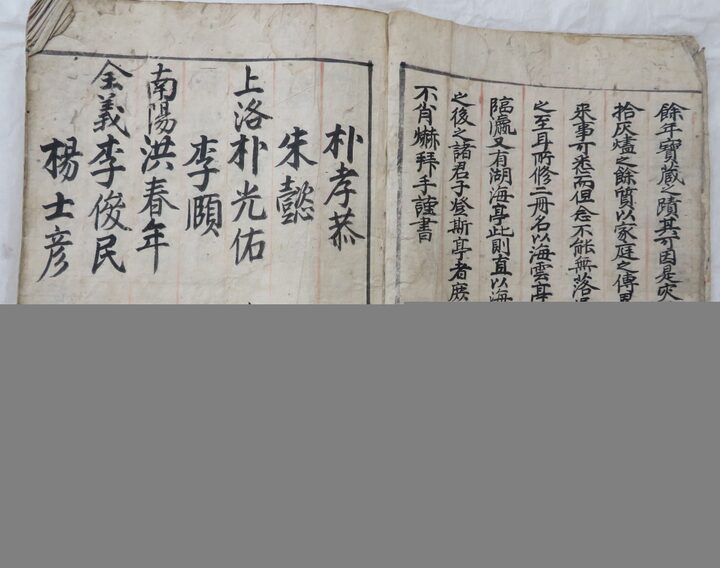 餘年寶蔵之蹟其可因是灾
拾灰燼之餘質以家庭之傳
来事可悉而但念不能無落
之至耳所修二冊名以海雲亭
臨瀛又有湖海亭此則直以海
之後之諸君子登斯亭者庶
不肖爀拜手謹書
朴孝恭
朱懿
上洛朴光佑
李頤
南陽洪春年
全義李俊民
楊士彦